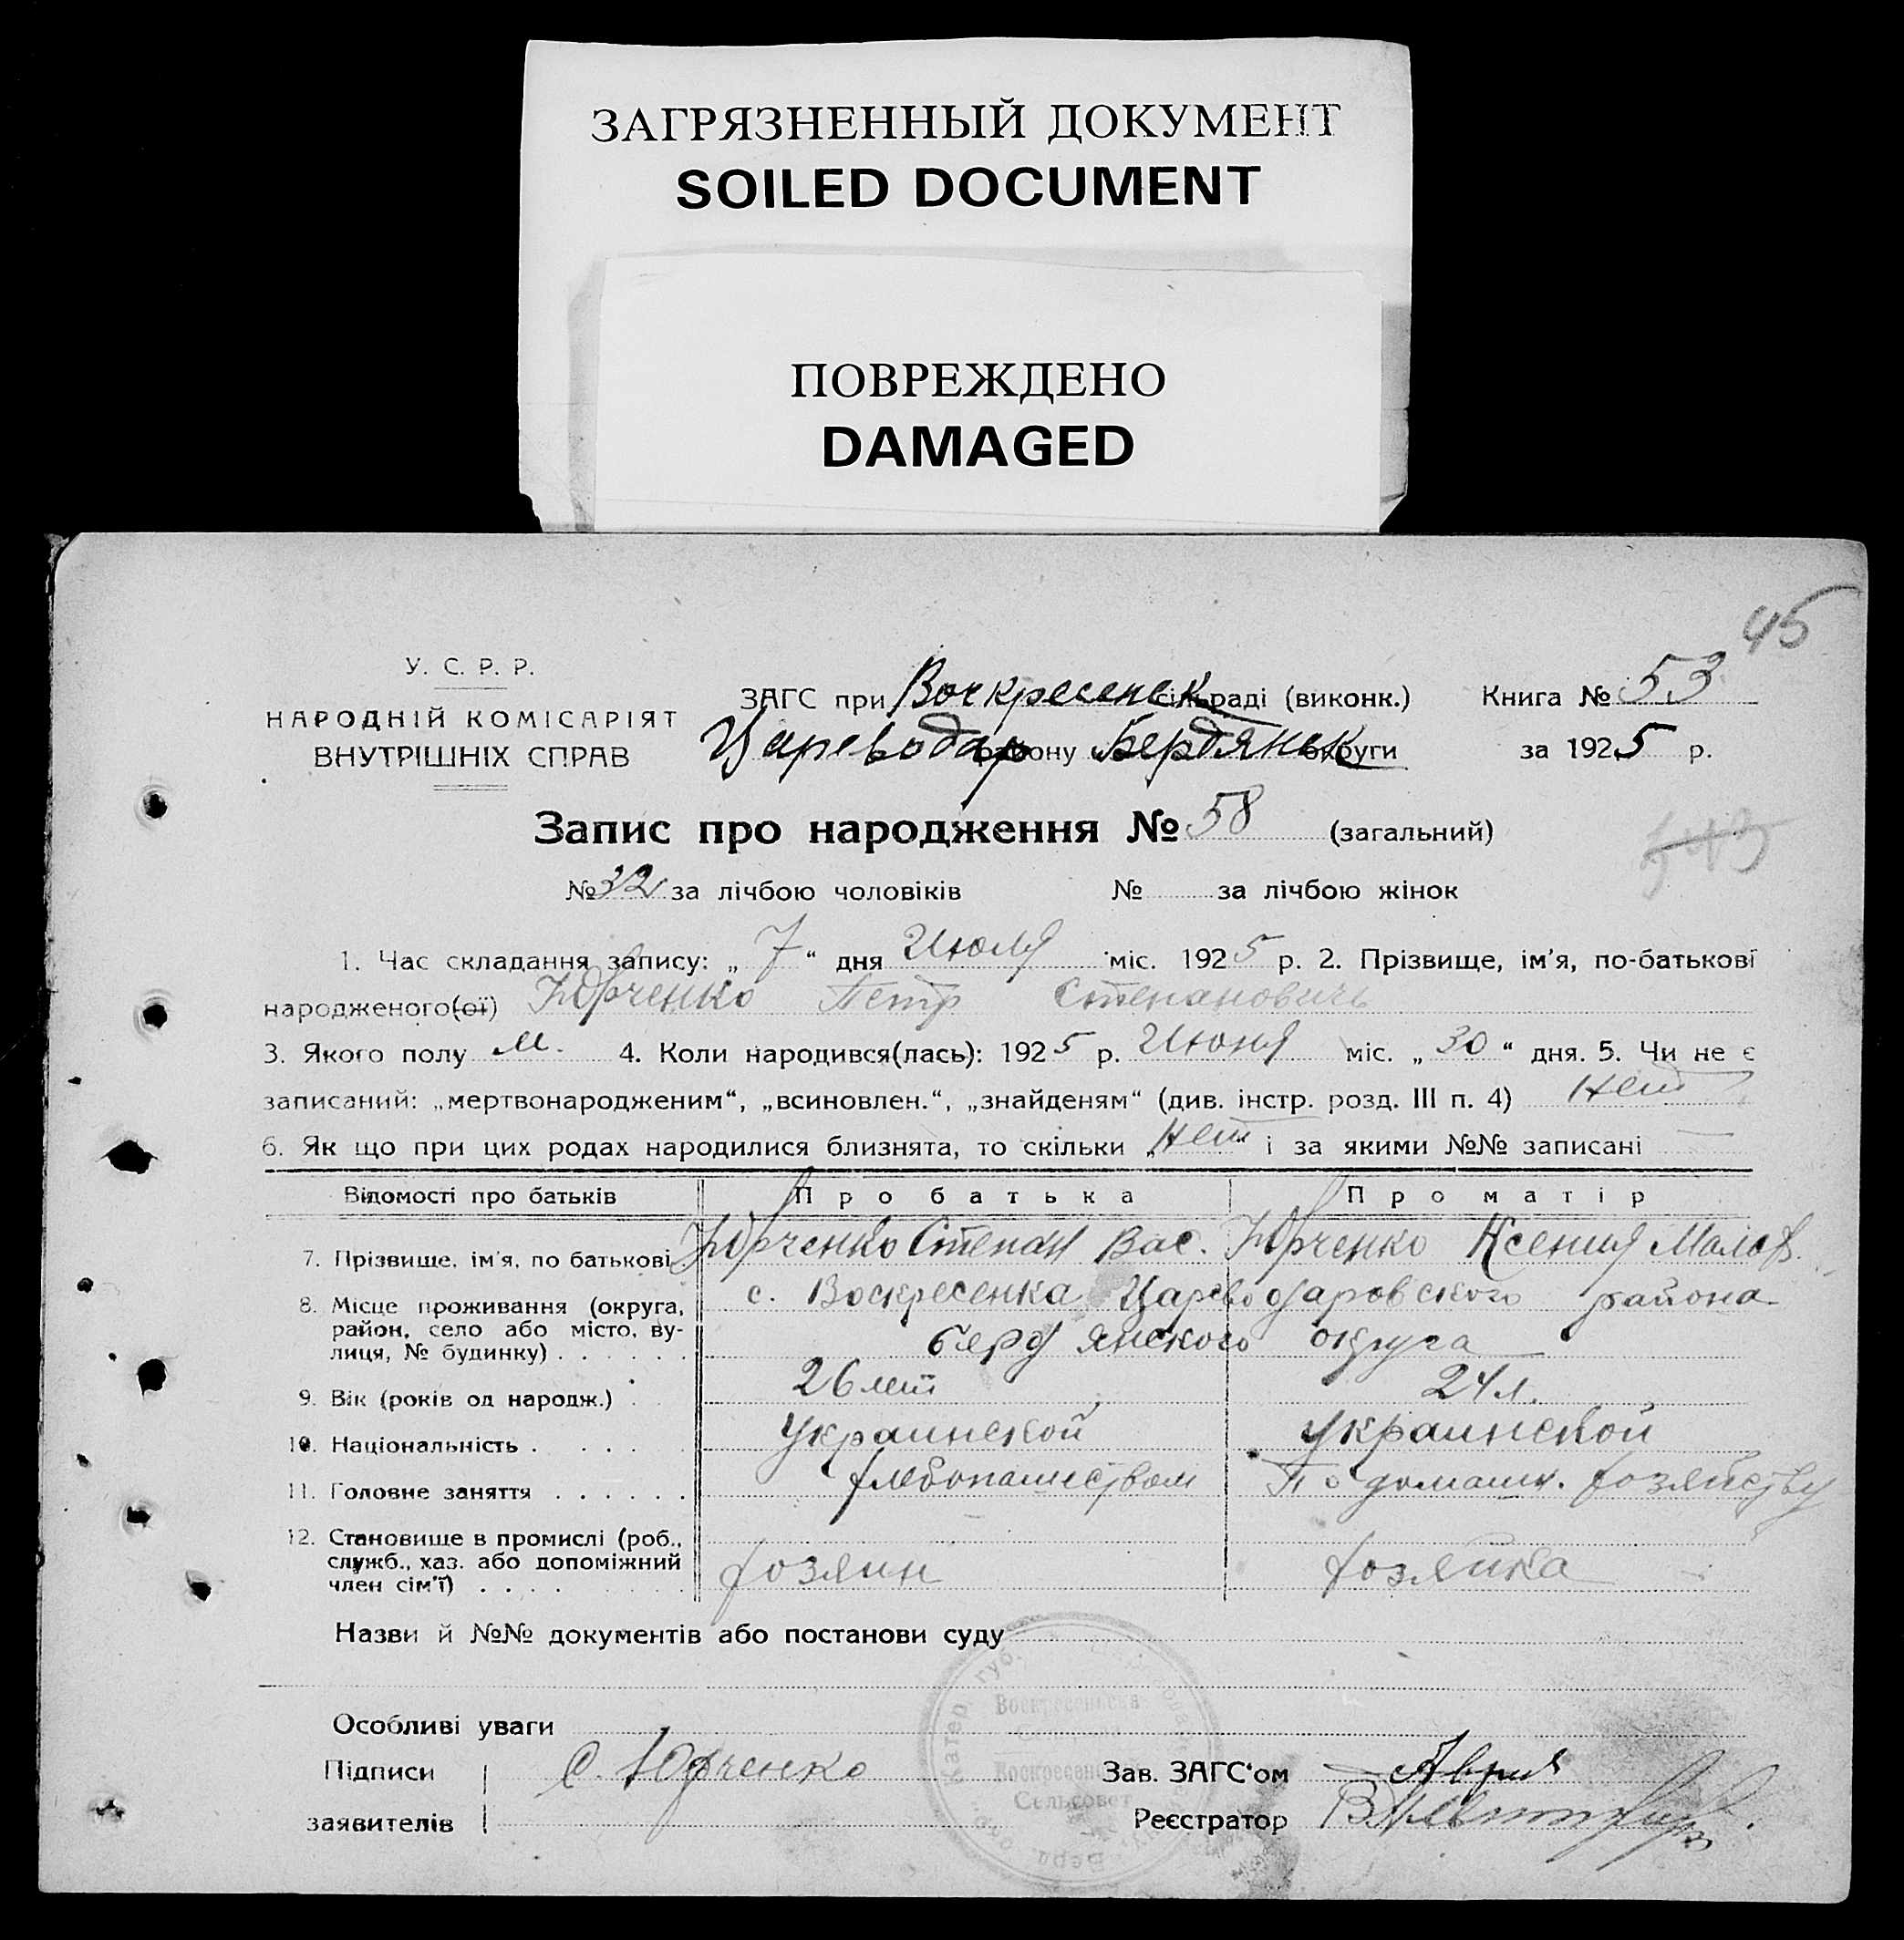 ЗАГРЯЗНЕННЫЙ ДОКУМЕНТ
SOILED DOCUMENT
ПОВРЕЖДЕНО
DAMAGED
45
У. С. Р. Р.
НАРОДНІЙ КОМІСАРІЯТ
ВНУТРІШНІХ СПРАВ
ЗАГС при Воскресенск сільраді (виконк.) Книга № 53
Цареводар району Бердянск округи за 1925 р.
Запис про народження № 58 (загальний)
543
№ 32 за лічбою чоловіків № за лічбою жінок
1. Час складання запису: „ 7 “ дня Июля міс. 1925 р. 2. Прізвище, ім'я, по-батькові
народженого(ої) Юрченко Петр Степановичь
3. Якого полу м. 4. Коли народився(лась): 1925 р. Июня міс. „ 30 “ дня. 5. Чи не є
записаний: „мертвонародженим“, „всиновлен.“, „знайденям“ (див. інстр. розд. III п. 4) Нет
6. Як що при цих родах народилися близнята, то скільки „ Нет і за якими №№ записані —
Відомості про батьків Про батька Про матір
7. Прізвище, ім'я, по батькові Юрченко Степан Вас. Юрченко Ксения
8. Місце проживання (округа, район, село або місто, вулиця, № будинку) . . . . . . с. Воскресенка Цареводаровского района
Бердянского округа
9. Вік (років од народж.) . . 26 лет 24 л.
10. Національність . . . . . Украинской Украинской
11. Головне заняття . . . . . . Хлебопашеством По домашн. хозяйству
12. Становище в промислі (роб., служб., хаз. або допоміжний член сім'ї) . . . . Хозяин Хозяйка
Назви й №№ документів або постанови суду
Особливі уваги
Катер. губ.
Воскресенська
Воскресенский
Сельсовет
Підписи С. Юрченко Зав. ЗАГС'ом
заявителів Реєстратор